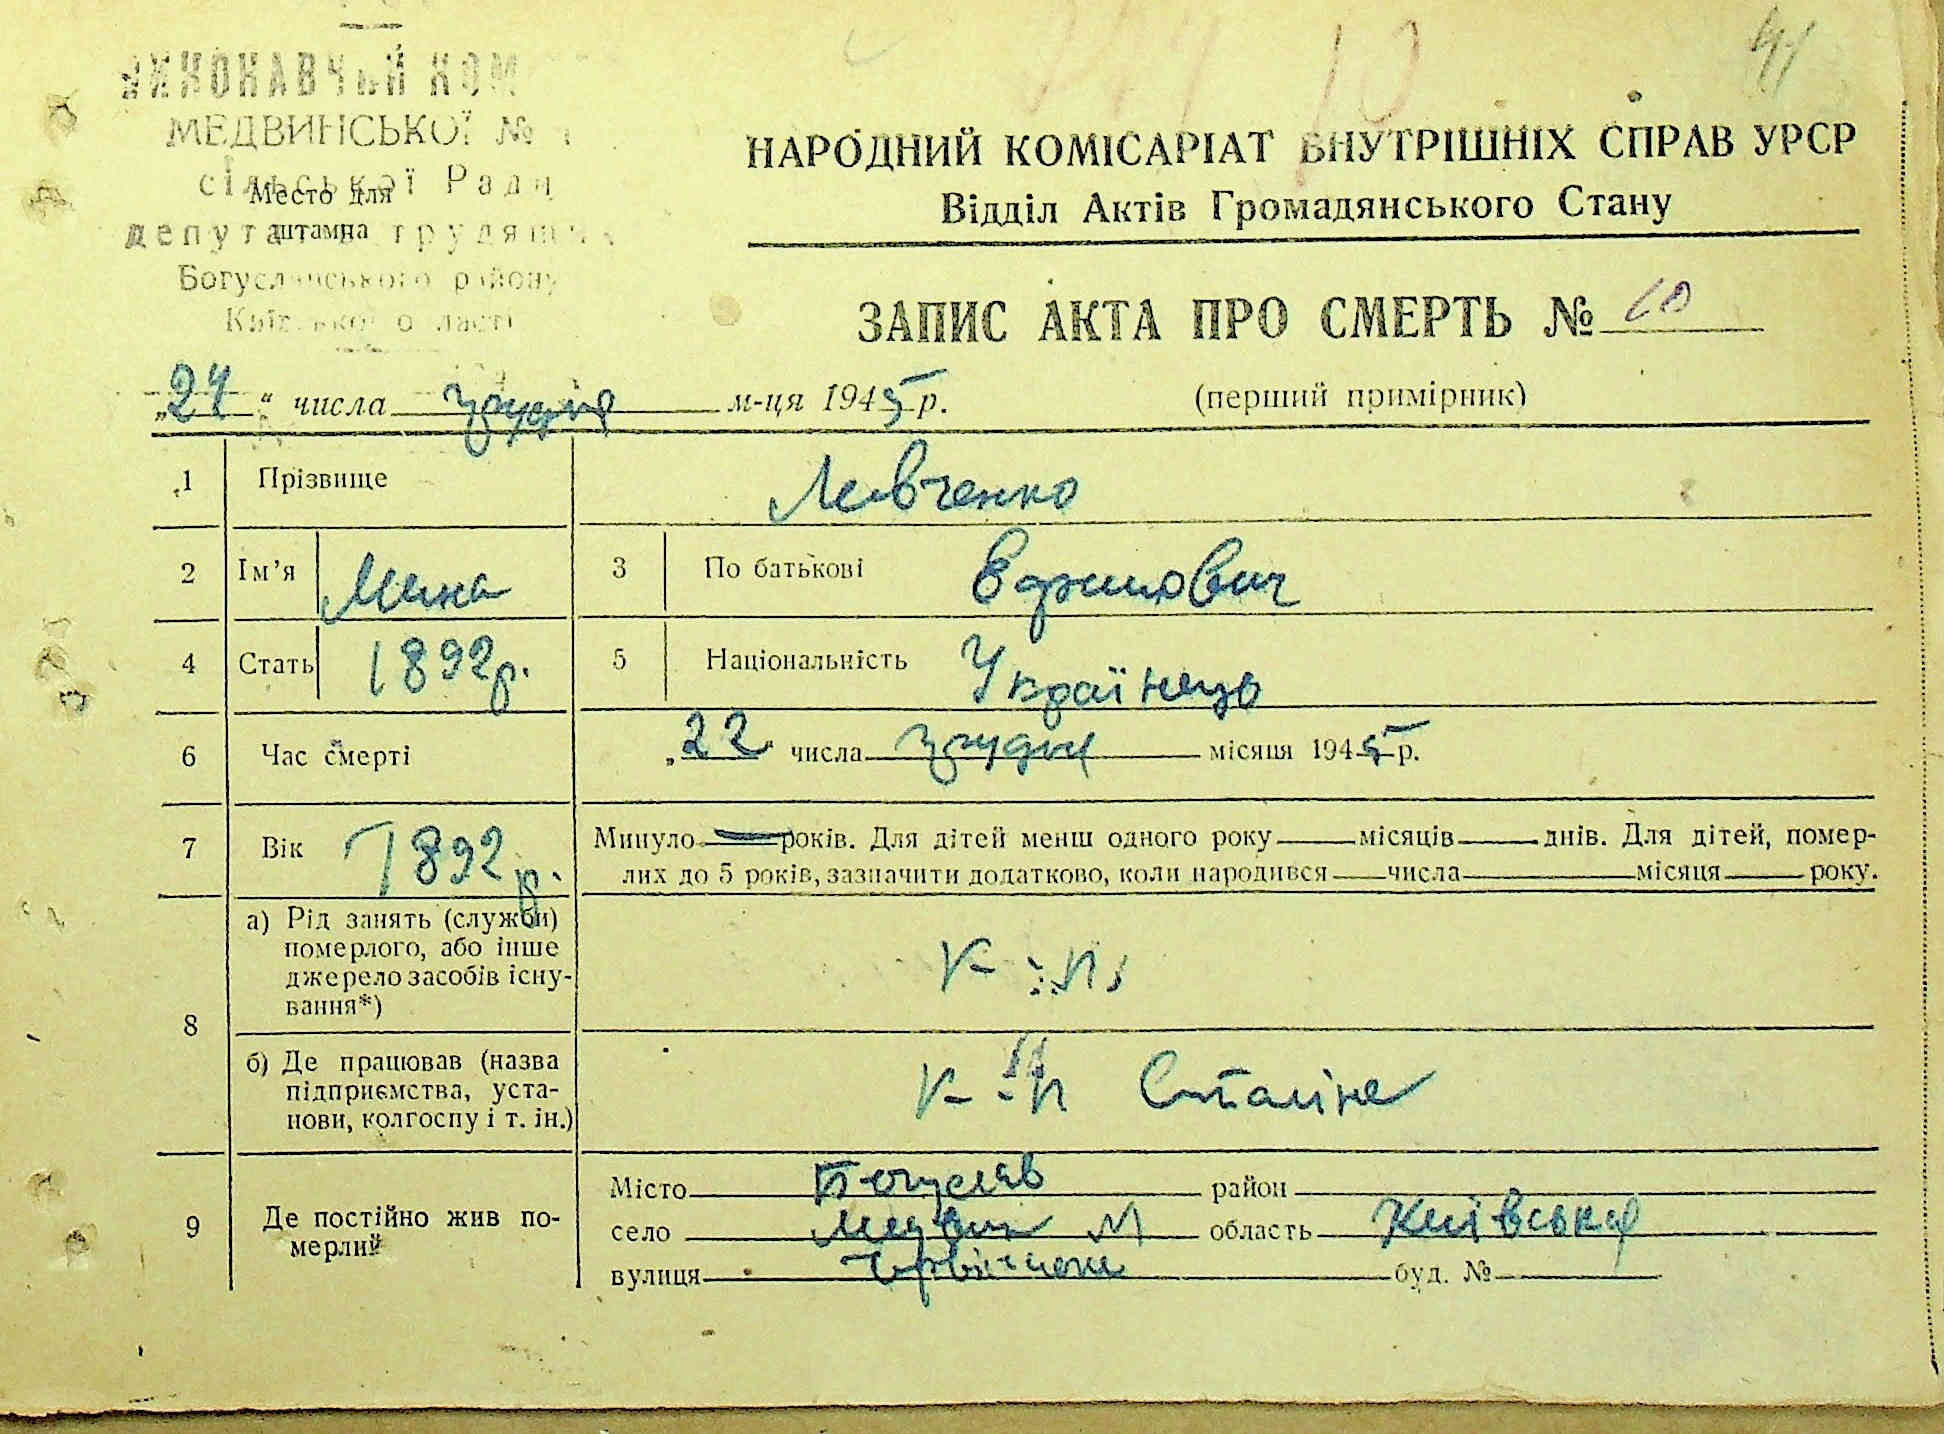 41
ВИКОНАВЧИЙ КОМ
МЕДВИНСЬКОЇ №
сільської Ради
Место для
депутатів трудящих
штампа
Богуславського району
Київської області
НАРОДНИЙ КОМІСАРІАТ ВНУТРІШНІХ СПРАВ УРСР
Відділ Актів Громадянського Стану
ЗАПИС АКТА ПРО СМЕРТЬ № 10
„24“ числа грудня м-ця 1945 р. (перший примірник)
1 Прізвище Левченко
2 Ім’я Мина 3 По батькові
4 Стать 1892р. 5 Національність Українець
6 Час смерті „22“ числа грудня місяця 1945 р.
7 Вік 1892р. Минуло років. Для дітей менш одного року місяців днів. Для дітей, помер-
лих до 5 років, зазначити додатково, коли народився числа місяця року.
8 а) Рід занять (служби)
померлого, або інше
джерело засобів існу-
вання*)
к-п
б) Де працював (назва
підприємства, уста-
нови, колгоспу і т. ін.)
к-п Сталіна
9 Де постійно жив по-
мерлий
Місто Богуслав район
село Медвин область Київська
вулиця буд. №